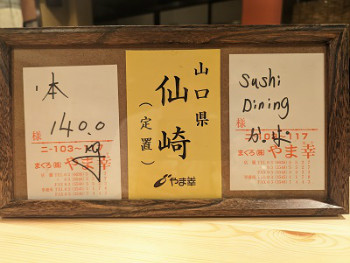 本
140.0
kg
様
ニ-103~
まぐろ(株)やま幸
山口県
仙崎
(定置)
やま幸
Sushi
Dining
様
117
まぐろ(株)やま幸